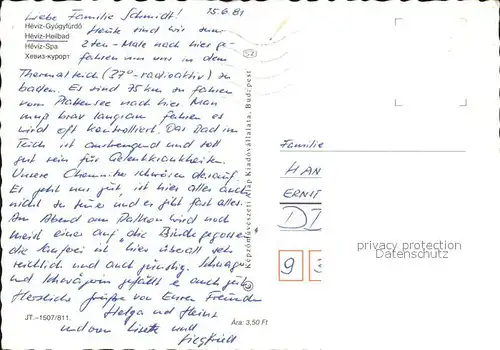 Liebe Familie Schmidt! 15.6.81
Hévíz-Gyógyfürdő
Hévíz-Heilbad
Hévíz-Spa
Хевиз-курорт
Heute sind wir zum
2ten-Male nach hier ge-
fahren um uns in dem
Thermalteich (27°-radioaktiv) zu
baden. Es sind 75 km zu fahren
vom Plattensee nach hier. Man
muß brav langsam fahren es
wird oft kontrolliert. Das Bad im
Teich ist anstrengend und soll
gut sein für Gelenkkrankheiten.
Unsere Chemnitzer schwören darauf.
Es geht uns gut, ist hier alles auch
nicht so teuer und es gibt fast alles.
Am Abend am Balkon wird noch
meist eine auf "die Binde gegossen"
die Kauferei ist hier überall sehr
reichlich und auch günstig. Schwager
und Schwägerin gefällt es auch gut.
Herzliche Grüße von Euren Freunden
Helga und Heinz
und von und
Siegfried
JT.-1507/811.
Ára: 3,50 Ft
Képzőművészeti Alap Kiadóvállalata, Budapest
52
Familie
HAN
ERNST
9
privacy protection
Datenschutz